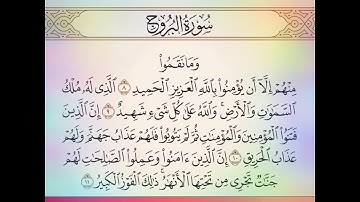 سُورَةُ الْبُرُوجِ
وَمَا نَقَمُوا۟
مِنْهُمْ إِلَّآ أَن يُؤْمِنُوا۟ بِٱللَّهِ ٱلْعَزِيزِ ٱلْحَمِيدِ ٨ ٱلَّذِى لَهُۥ مُلْكُ
ٱلسَّمَٰوَٰتِ وَٱلْأَرْضِ ۚ وَٱللَّهُ عَلَىٰ كُلِّ شَىْءٍ شَهِيدٌ ٩ إِنَّ ٱلَّذِينَ
فَتَنُوا۟ ٱلْمُؤْمِنِينَ وَٱلْمُؤْمِنَٰتِ ثُمَّ لَمْ يَتُوبُوا۟ فَلَهُمْ عَذَابُ جَهَنَّمَ وَلَهُمْ
عَذَابُ ٱلْحَرِيقِ ١٠ إِنَّ ٱلَّذِينَ ءَامَنُوا۟ وَعَمِلُوا۟ ٱلصَّٰلِحَٰتِ لَهُمْ
جَنَّٰتٌ تَجْرِى مِن تَحْتِهَا ٱلْأَنْهَٰرُ ۚ ذَٰلِكَ ٱلْفَوْزُ ٱلْكَبِيرُ ١١